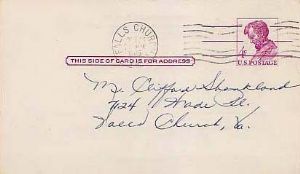 FALLS CHURCH
4¢
U.S. POSTAGE
THIS SIDE OF CARD IS FOR ADDRESS
Mr. Clifford Shankland
7124 Wade Pl.
Falls Church, Va.